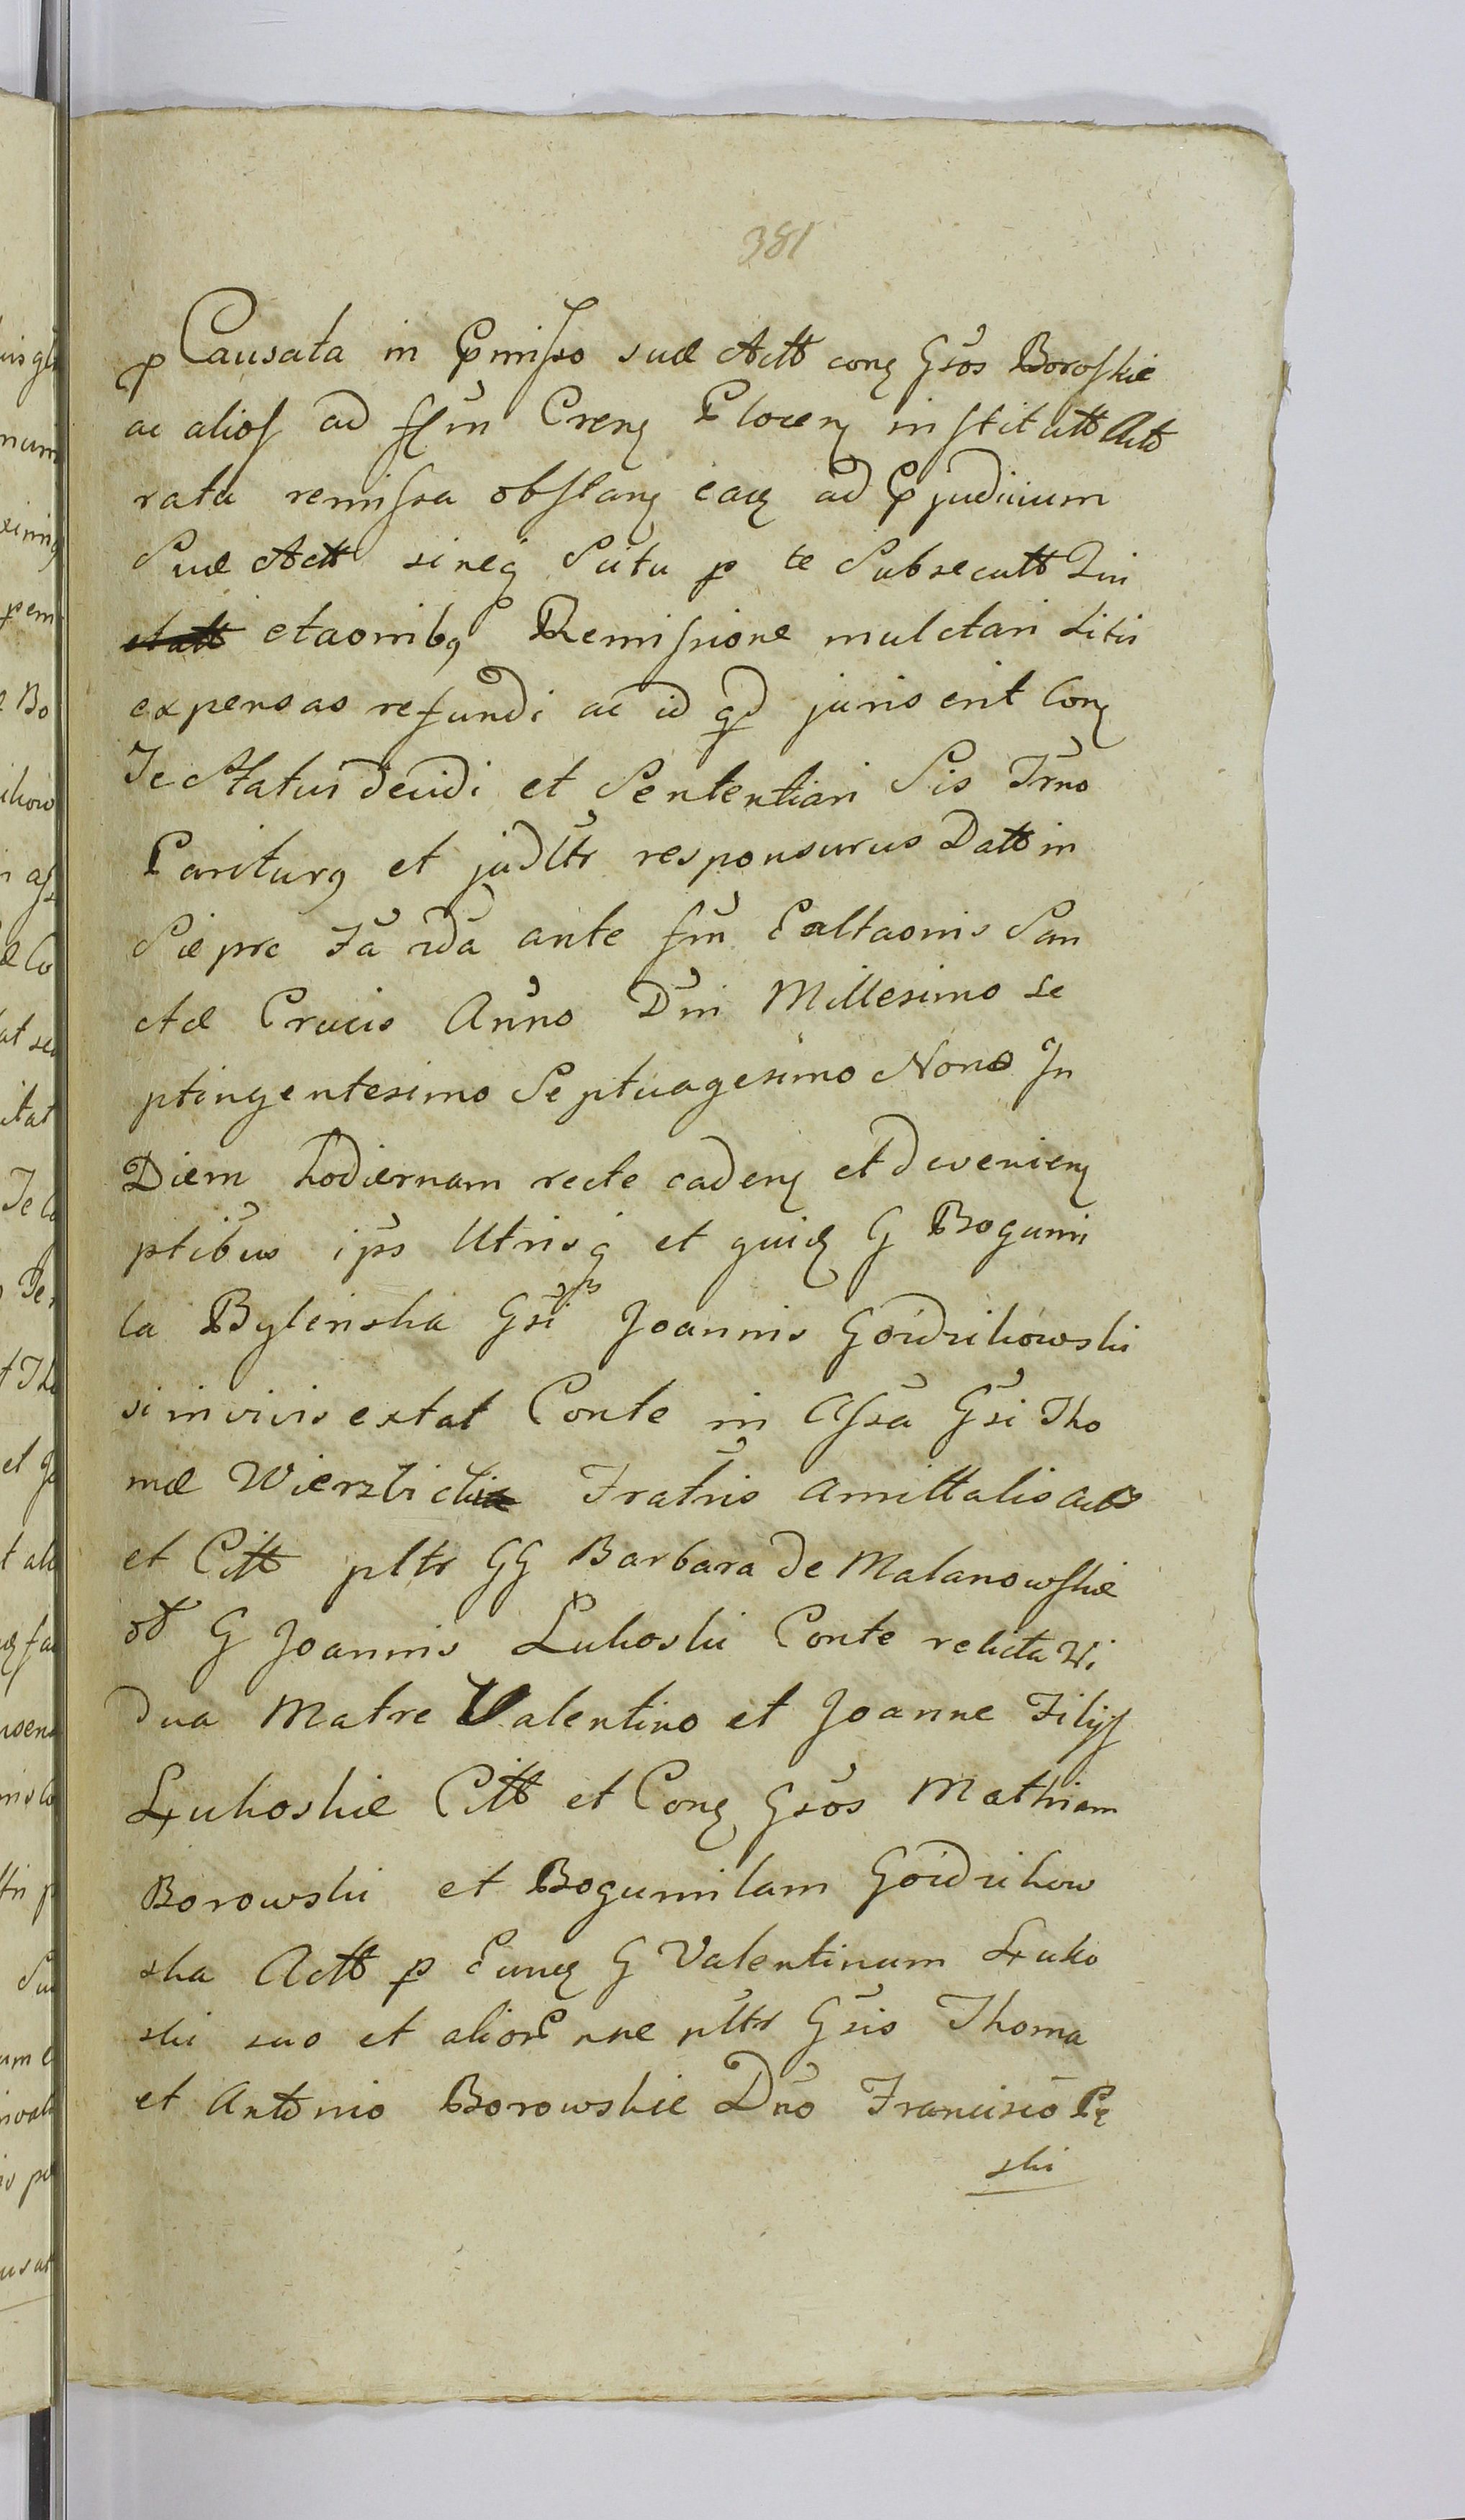 381
p Causata in Pmisso suæ Actt conz Gsos Boroskie
ac alios ad ffm Crenz Plocenz institutt Actt
rata remissa obstanz eacz ad Pjudicium
Suæ Actt sineq Scitu p te Subsecutt
citaonibq Remissione mulctari Litis
expensas refundi ac id qd juris erit Conz
Te Statui decidi et Sententiari Sis Trno
Pariturq et judltr responsurus Datt in
Sie prc Fa ida ante fm Ealtaonis San
ctæ Crucis Anno Dni Millesimo se
ptingentesimo Septuagesimo Nono In
Diem hodiernam recte cadenz et devenienz
ptibus ips Utrisq et quicz G Bogumi
la Bylinska Gsi Joannis Goidzikowski
si in vivis extat Conte in Assa Gsi Tho
mæ Wierzbicki Fratris Amittalis Actt
et Citt pltr GG Barbara de Malanowskie
od G Joannis Lukoski Conte relicta Vi
dua Matre Valentino et Joanne Filijs
Łukoskie Citt et Conz Gsos Mathiam
Borowski et Bogumilam Goidzikow
ska Actt p Euncz G Valentinum Łuko
ski suo et alior nne pltr Gsis Thoma
et Antonio Borowskie Dno Francisco Pę
ski